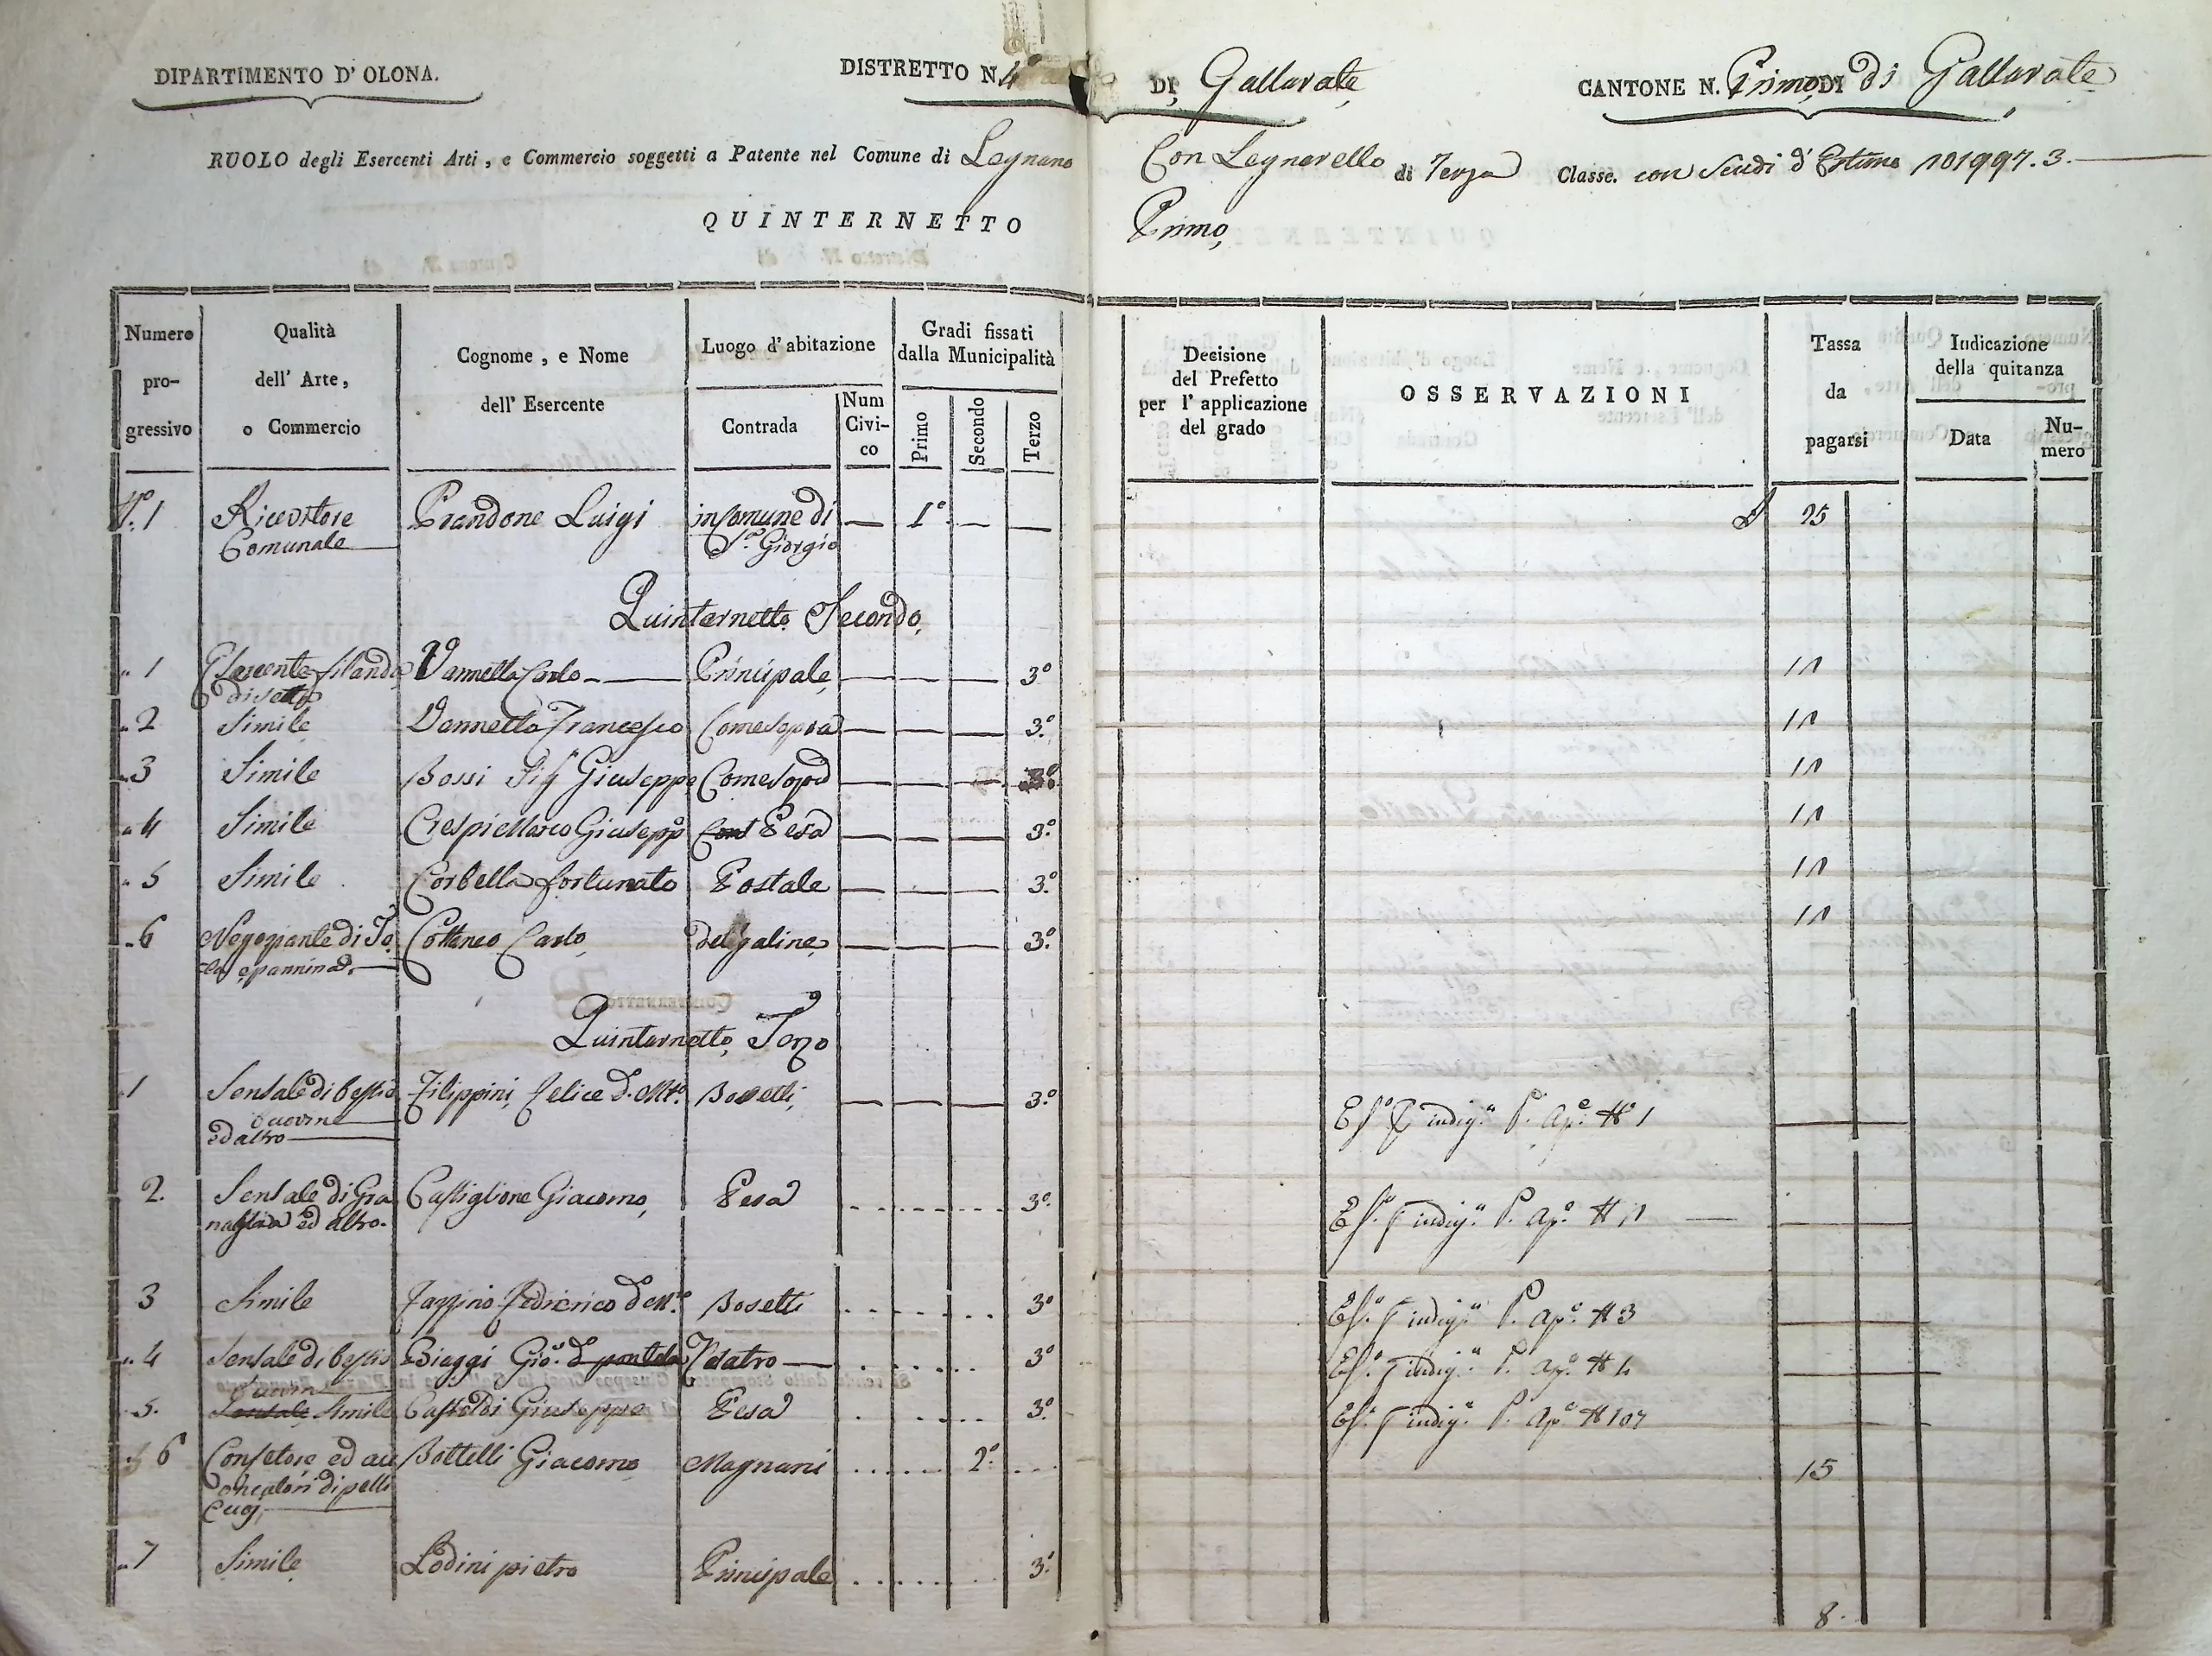 DIPARTIMENTO D' OLONA.
DISTRETTO N. 4° DI Gallarate
CANTONE N. Primo DI di Gallarate
RUOLO degli Esercenti Arti, e Commercio soggetti a Patente nel Comune di Legnano Con Legnarello di Terza Classe. con Scudi d'Estimo 101997.3.
QUINTERNETTO Primo
Numero progressivo
Qualità dell' Arte, o Commercio
Cognome, e Nome dell' Esercente
Luogo d' abitazione
Contrada
Num Civico
Gradi fissati dalla Municipalità
Primo
Secondo
Terzo
Decisione del Prefetto per l' applicazione del grado
OSSERVAZIONI
Tassa da pagarsi
Indicazione della quitanza
Data
Numero
N.° 1 Ricevitore Prandone Luigi in Comune di — 1° — — 25
Comunale S.n Giorgio
Quinternetto Secondo
1 Esercente filanda Vannetta Carlo Principale — — — 3°
di setta
2 Simile Vannetta Francesco Come sopra — — — 3°
3 Simile Bossi Sig Giuseppe Come sopra — — — 3°
4 Simile Crespi Marco Giuseppe Pesa — — — 3°
5 Simile Corbella fortunato Postale — — — 3°
6 Negoziante di Te Cottaneo Carlo del galine — — — 3°
la e pannina
Quinternetto Terzo
1 Sensale di bestie Filippini Felice Bosetti — — — 3° N° 1
bovine
ed altro
2. Sensale di Gra Castiglione Giacomo Pesa 3°
naglia ed altro
3 Simile Fazzino Federico Bosetti 3° N 3
4 Sensale di bestie Biaggi Gio. 3° N 4
bovine
5. Simile Castoldi Giuseppe Pesa 3° N 107
6 Confetore ed ac Bottelli Giacomo Magnani 2° 15
conciatori di pelli
7 Simile Lodini pietro Principale 3° 8.